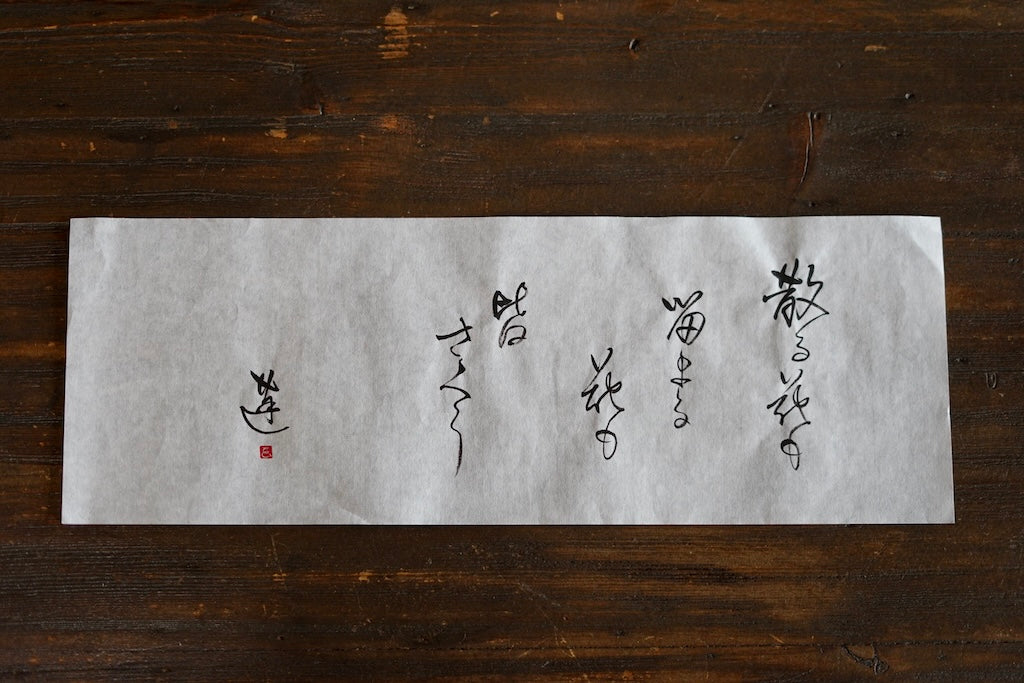 散る花も
留まる
花も
皆
さくら